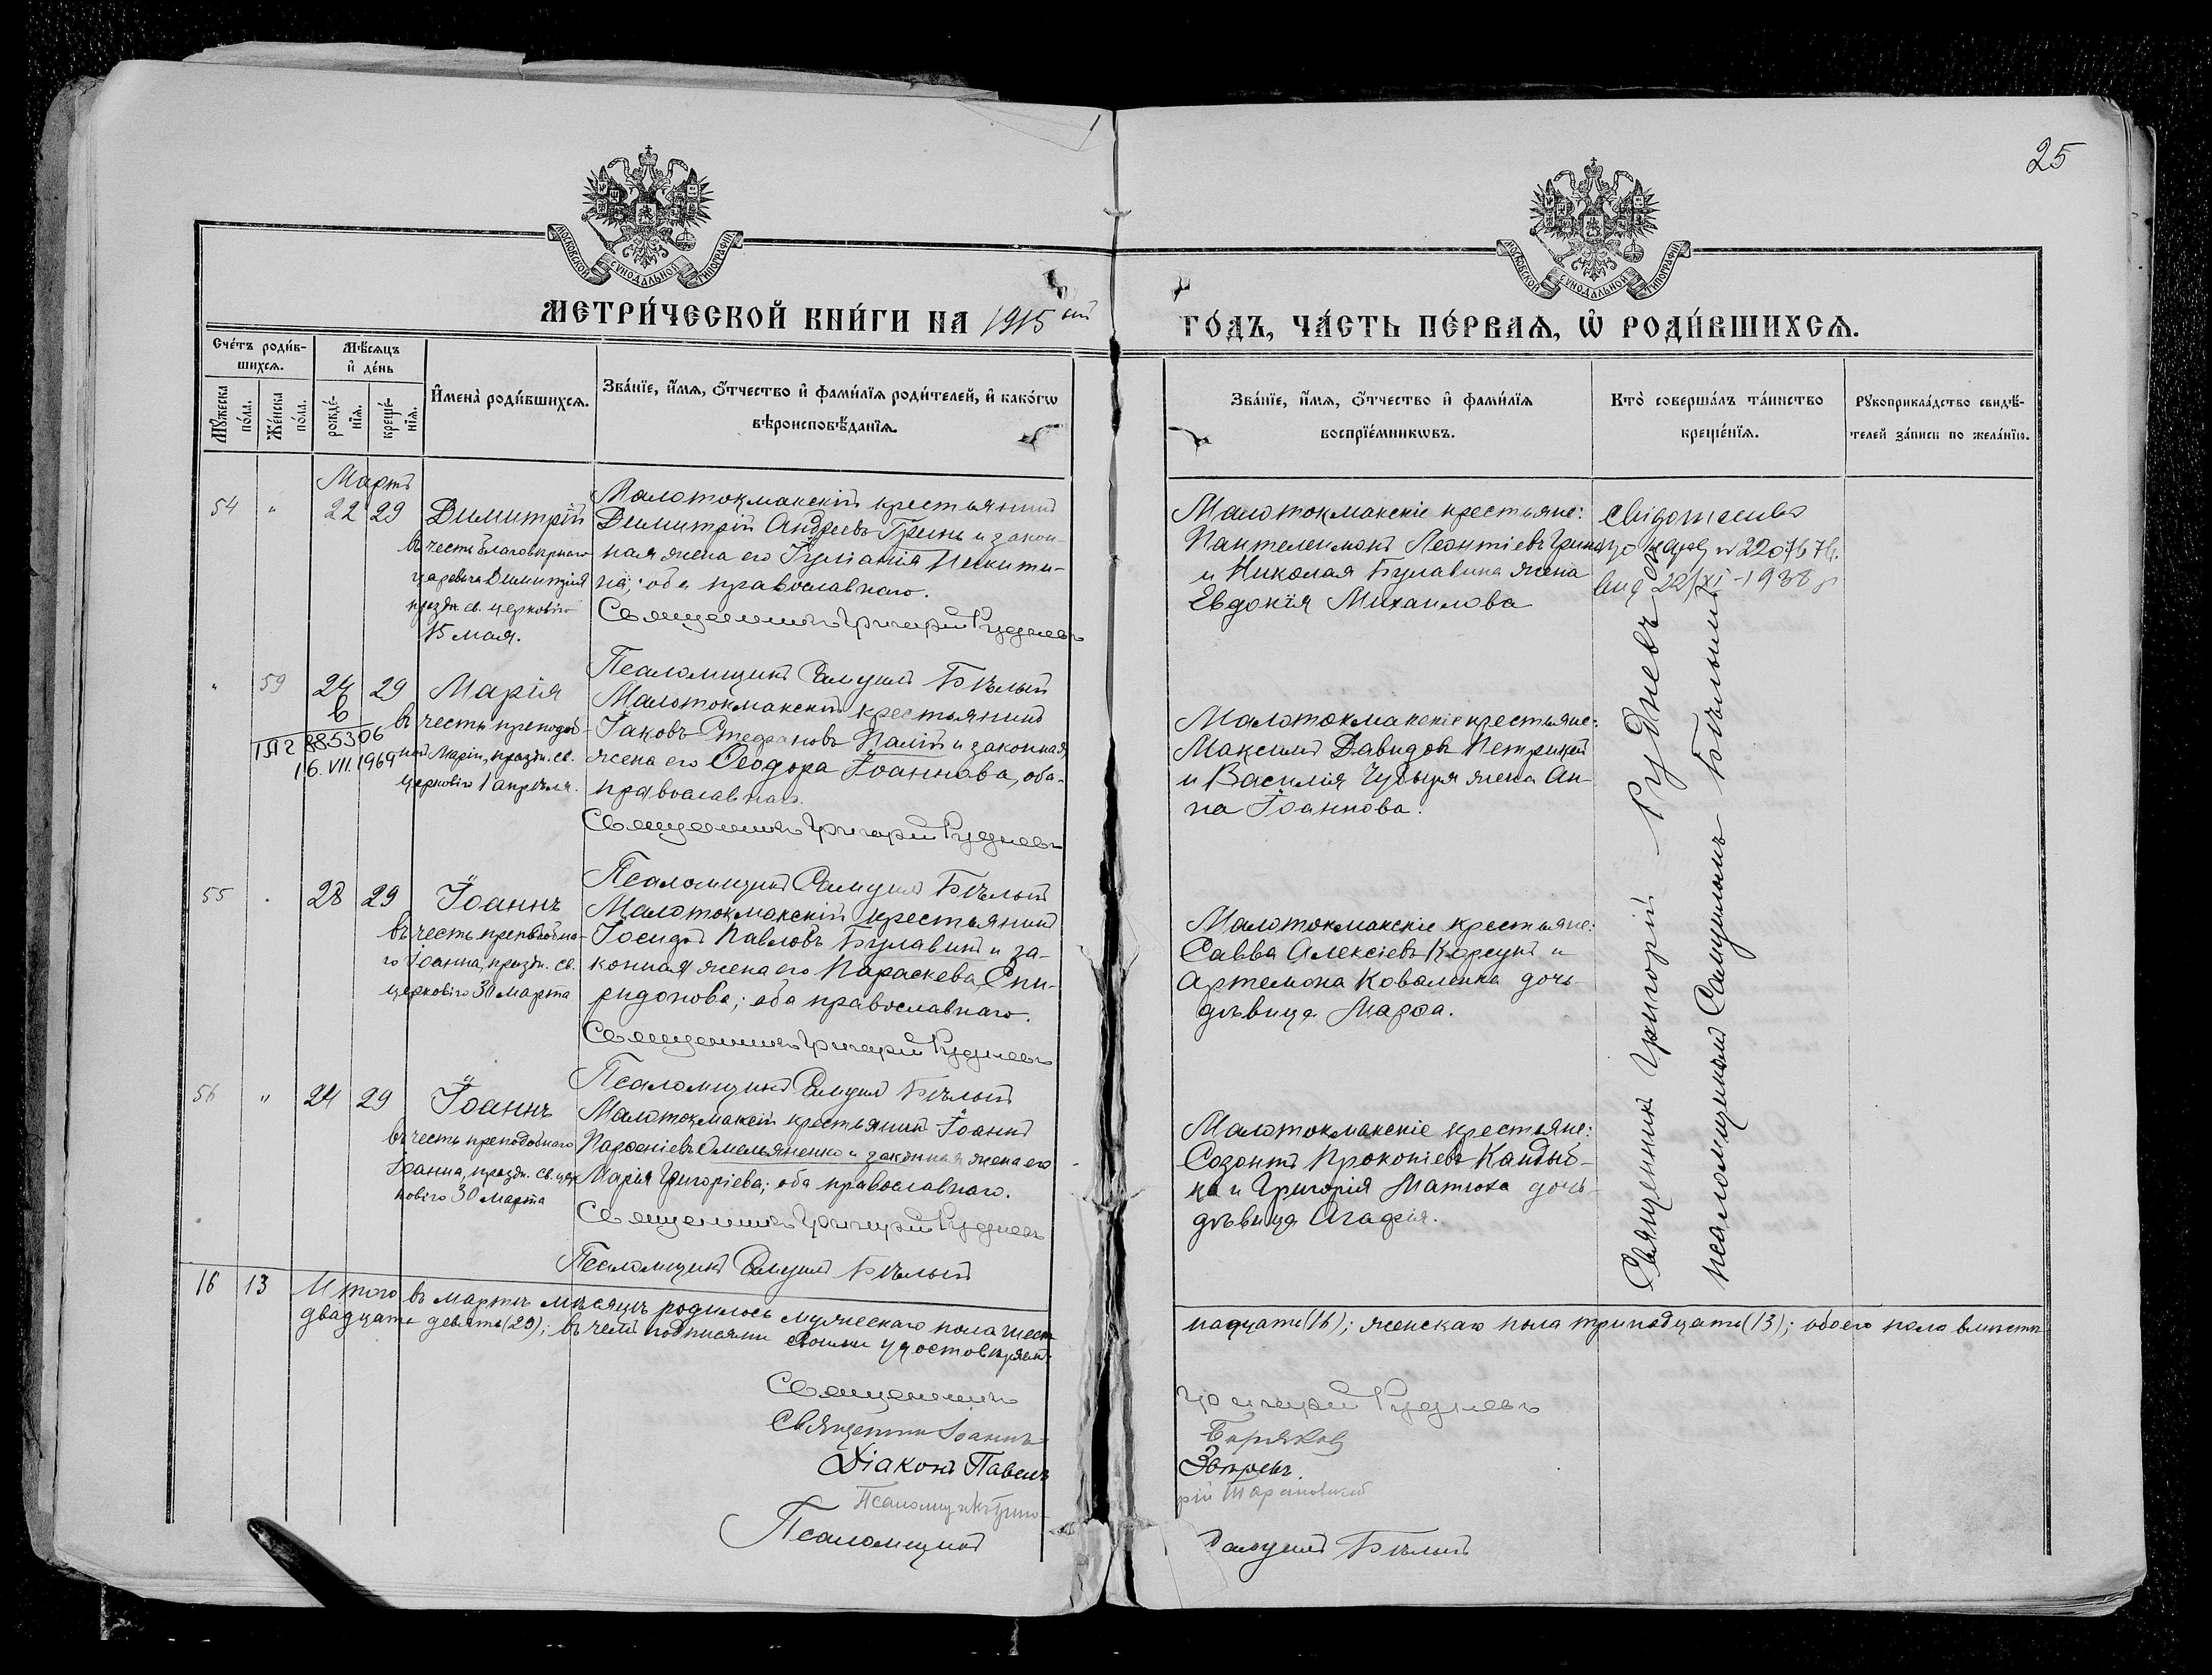 25
МОСКОВСКОЙ СѴНОДАЛЬНОЙ ТИПОГРАФІИ
МОСКОВСКОЙ СѴНОДАЛЬНОЙ ТИПОГРАФІИ
МЕТРИ́ЧЕСКОЙ КНИ́ГИ НА 1915 ый
ГО́ДЪ, ЧА́СТЬ ПЕ́РВАѦ, Ѡ РОДИ́ВШИХСѦ.
Сче́тъ роди́в-
шихсѧ.
Мꙋжеска по́ла.
Же́нска по́ла.
Мѣ́сѧцъ
и҆ де́нь
рожде́-
нїѧ.
креще́-
нїѧ.
И҆мена̀ роди́вшихсѧ.
Зва́нїе, и҆́мѧ, ѻ҆́тчество и҆ фами́лїѧ роди́телей, и҆ како́гѡ
вѣроисповѣ́данїѧ.
Зва́нїе, и҆́мѧ, ѻ҆́тчество и҆ фами́лїѧ
воспрїе́мникѡвъ.
Кто̀ соверша́лъ та́инство
креще́нїѧ.
Рꙋкоприкла́дство свидѣ́-
телей за́писи по жела́нїю.
Мартъ
54 " 22 29
Димитрій
въ честь благовѣрнаго
царевича Димитрія
праздн. св. церковію
15 мая.
Малотокмакскій крестьянинъ
Димитрій Андреевъ Гринь и закон-
ная жена его Іуліанія Никити-
на; оба православнаго.
Священникъ Григорій Рудневъ
Псаломщикъ Самуилъ Бѣлый
Малотокмакскіе крестьяне:
Пантелеимонъ Леонтіевъ Гринь
и Николая Булавина жена
Евдокія Михаилова
22/XI-1938 р
" 59 24 29
6
885306
16.VII.1969
Марія
въ честь преподоб-
ной Маріи, праздн. св.
церковію 1 апрѣля.
Малотокмакскій крестьянинъ
Іаковъ Стефановъ Палій и законная
жена его Ѳеодора Іоаннова, оба
православнаго.
Священникъ Григорій Рудневъ
Псаломщикъ Самуилъ Бѣлый
Малотокмакскіе крестьяне:
Максимъ Давидовъ Петрицкій
и Василія Чубыря жена Ан-
на Іоаннова.
55 . 28 29
Іоаннъ
въ честь преподобна-
го Іоанна, праздн. св.
церковію 30 марта
Малотокмакскій крестьянинъ
Іосифъ Павловъ Булавинъ и за-
конная жена его Параскева Спи-
ридонова; оба православнаго.
Священникъ Григорій Рудневъ
Псаломщикъ Самуилъ Бѣлый
Малотокмакскіе крестьяне:
Савва Алексіевъ Корсунъ и
Артемона Коваленка дочь
дѣвица Марѳа.
56 " 24 29
Іоаннъ
въ честь преподобнаго
Іоанна, праздн. св. цер-
ковію 30 марта
Малотокмакскій крестьянинъ Іоаннъ
Парѳеніевъ Омельяненко и законная жена его
Марія Григоріева; оба православнаго.
Священникъ Григорій Рудневъ
Псаломщикъ Самуилъ Бѣлый
Малотокмакскіе крестьяне:
Созонтъ Прокопіевъ Кандыб-
ка и Григорія Матюха дочь
дѣвица Агафія.
Священникъ Григорій Рудневъ съ
псаломщикомъ Самуиломъ Бѣлымъ
16 13 Итого въ мартѣ мѣсяцѣ родилось мужескаго пола шест-
надцать (16); женскаго пола тринадцать (13); обоего пола вмѣстѣ
двадцать девять (29); въ чемъ подписями своими удостовѣряемъ:
Священникъ Григорій Рудневъ
Священникъ Іоаннъ
Діаконъ Павелъ Звѣревъ.
Псаломщикъ Григо-
рій
Псаломщикъ Самуилъ Бѣлый